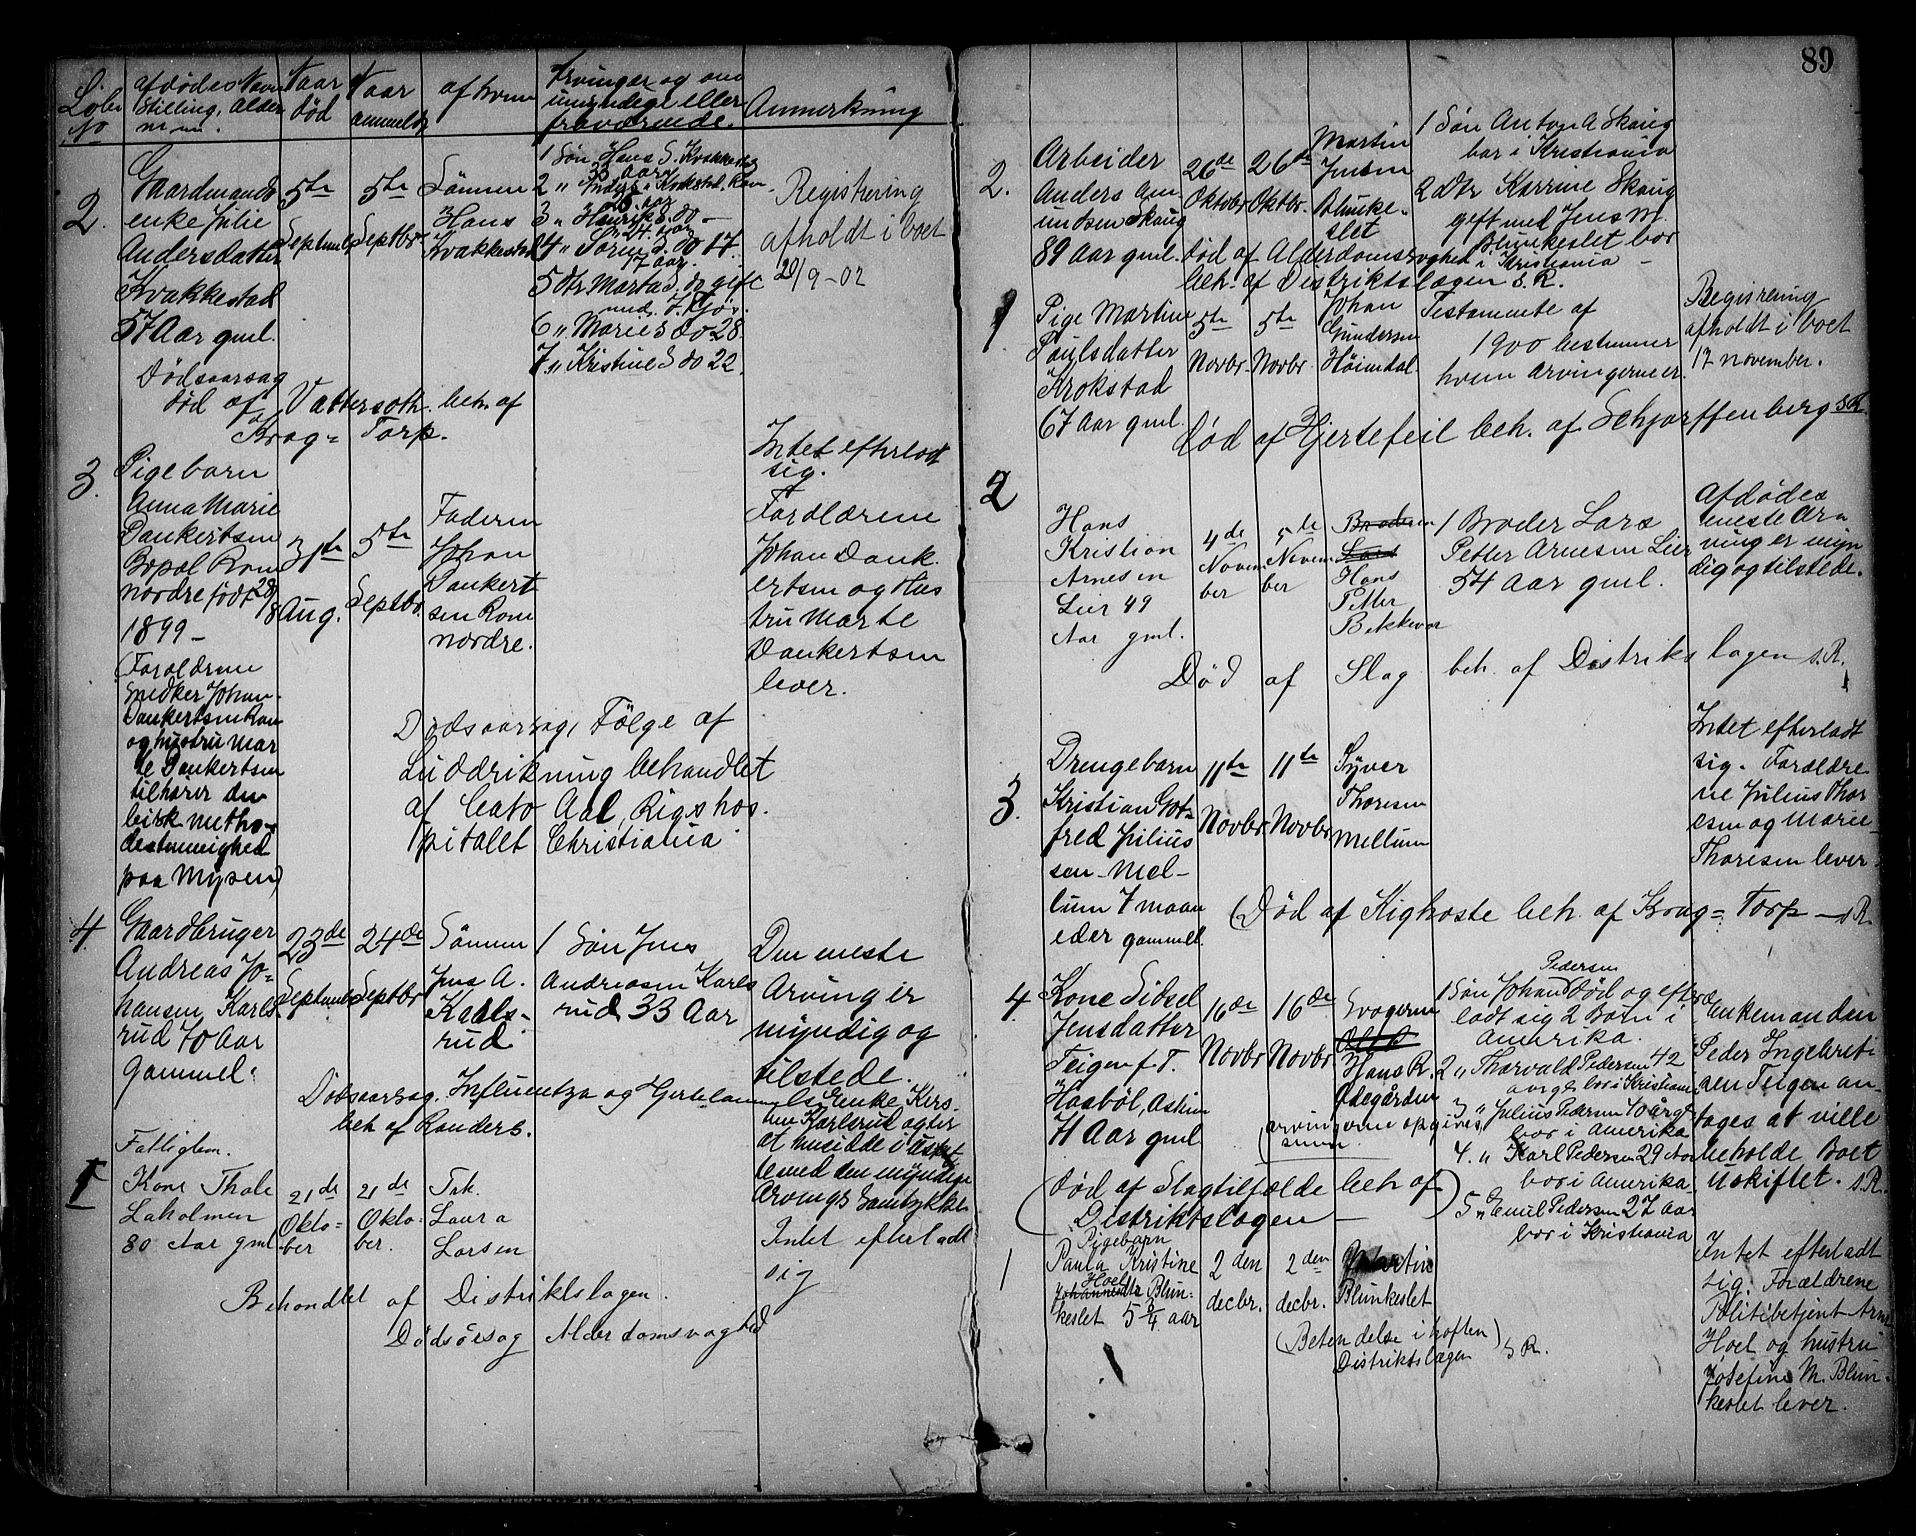 Løbe No
afdødes Navn Stilling, Alder m.m.
Naar død
Naar anmeldt
af hvem
Arvinger og om umyndige eller fraværende.
Anmerkning
2.
Gaardmands
enke Julie
Andersdatter
Kvakkestad
57 Aar gml.
5te
Septembr
5te
Septbr
Sønnen
Hans
Kvakkestad
1 Søn Hans S. Kvakkestad
33 aar
2 " Anders " Kvakstad
3 " Henrik S. do –
24 aar
4 " Søren S. do 17.
17 aar.
5 dtr Marta S. do gift
med J. Kjøs.
6 " Marie S do 28.
7 " Kristine S do 22.
Registrering
afholdt i boet
20/9-02
Dødsaarsag
død af Vattersoth. beh. af
Krag = Torp.
3.
Pigebarn
Anna Marie
Dankertsen
Bopæl Rom
nordre født 28/8
1899 –
(Forældrene
Snedker Johan
Dankertsen Rom
og hustru Mar
te Dankertsen
tilhører den
bisk. metho-
destmenighed
paa Mysen)
31te
Aug.
5te
Septbr.
Faderen
Johan
Dankert
sen Rom
nordre.
Intet efterladt
sig.
Forældrene
Johan Dank
ertsen og Hus
tru Marte
Dankertsen
lever.
Dødsaarsag, Følge af
Luddrikning behandlet
af Cato Aal, Rigshos.
pitalet Christiania
4.
Gaardbruger
Andreas Jo-
hansen Karls
rud 70 Aar
Gammel.
23de
Septembr
24de
Septbr
Sønnen
Jens A.
Karls-
rud
1 Søn Jens
Andreasen Karls
rud 33 Aar
Den eneste
Arving er
myndig og
tilstede.
Enke Kirs-
tine Karlsrud agter
at hensidde i Uskif
te med den myndige
Arvings Samtykke
Dødsaarsag. Influentza og Hjertelammelse
beh af Randers.
1
Fattiglem.
Kone Thale
Laholmen
80 Aar gml
21de
Okto-
ber
21de
Okto-
ber.
Tak.
Laura
Larsen
Intet efterladt
sig
Behandlet af Distriktslægen.
Dødsårsag Alderdomsvaghed
89
2.
Arbeider
Anders Am
undsen Skaug
89 Aar gml.
26de
Oktobr
26de
Oktbr.
Martin
Jensen
Blunke-
slet
1 Søn Anton A Skaug
bor i Kristiania
2 Dtr Karrine Skaug
gift med Jens M.
Blunkeslet bor
i Kristiania –
død af Alderdomsvaghed
beh. af Distriktslægen S. R.
1
Pige Martine
Poulsdatter
Krokstad
67 Aar gml.
5te
Novbr
5te
Novbr.
Johan
Gundersen
Høimdal
Testamente af
1900 bestemmer
hvem Arvingerne er.
Registrering
afholdt i boet
17 november.
død af Hjertefeil beh. af Schjorffenberg S.R
2
Hans
Kristian
Arnesen
Lier 49
Aar gml.
4de
Novem
ber
5te
Novem
ber
Broderen
Lars
Hans
Petter
Bekkevar
1 Broder Lars
Petter Arnesen Lier
54 Aar gml.
Afdødes
eneste Ar
ving er myn
dig og tilstede.
Død af Slag beh. af Distrikslægen S.R.
3.
Drengebarn
Kristian Got-
fred Julius
sen Mel-
lum 7 maan
eder gammel.
11te
Novbr
11te
Novbr
Syver
Thoresen
Mellum
Intet efterladt
sig. Forældre
ne Julius Thor
esen og Marie
Thoresen lever.
(Død af Kighoste beh. af Krag = Torp – S.R.
4.
Kone Sidsel
Jensdatter
Teigen f. T.
Haabøl, Askim
71 Aar gml
16de
Novbr
16de
Novbr
Svogeren
Hans R.
Ødegården
arvingerne opgives,
Pedersen
1 Søn Johan død og efter
ladt sig 2 Børn i
Amerika.
2 " Thorvald Pedersen 42
aar gl. bor i Kristiania
3 " Julius Pedersen 40 årgl
bor i Amerika
4. " Karl Pedersen 29 Aar
bor i Amerika.
5 " Emil Pedersen 27 aar
bor i Kristiania
Enkemanden
Peder Ingebreti
aen Teigen an-
tages at ville
beholde Boet
Uskiftet. S.R.
(død af Slagtilfælde beh af
Distriktslægen –)
1
Pigebarn
Paula Kristine
Hoel
Johannesdtr Blun-
keslet 5 3/4 aar
2den
decbr.
2den
decbr.
Martin
Blunkeslet
(Betendelse i hoften
Distriktslægen) S R.
Intet efterladt
sig. Forældrene
Politibetjent Arne
Hoel og hustru
Josefine M. Blun-
keslet lever.